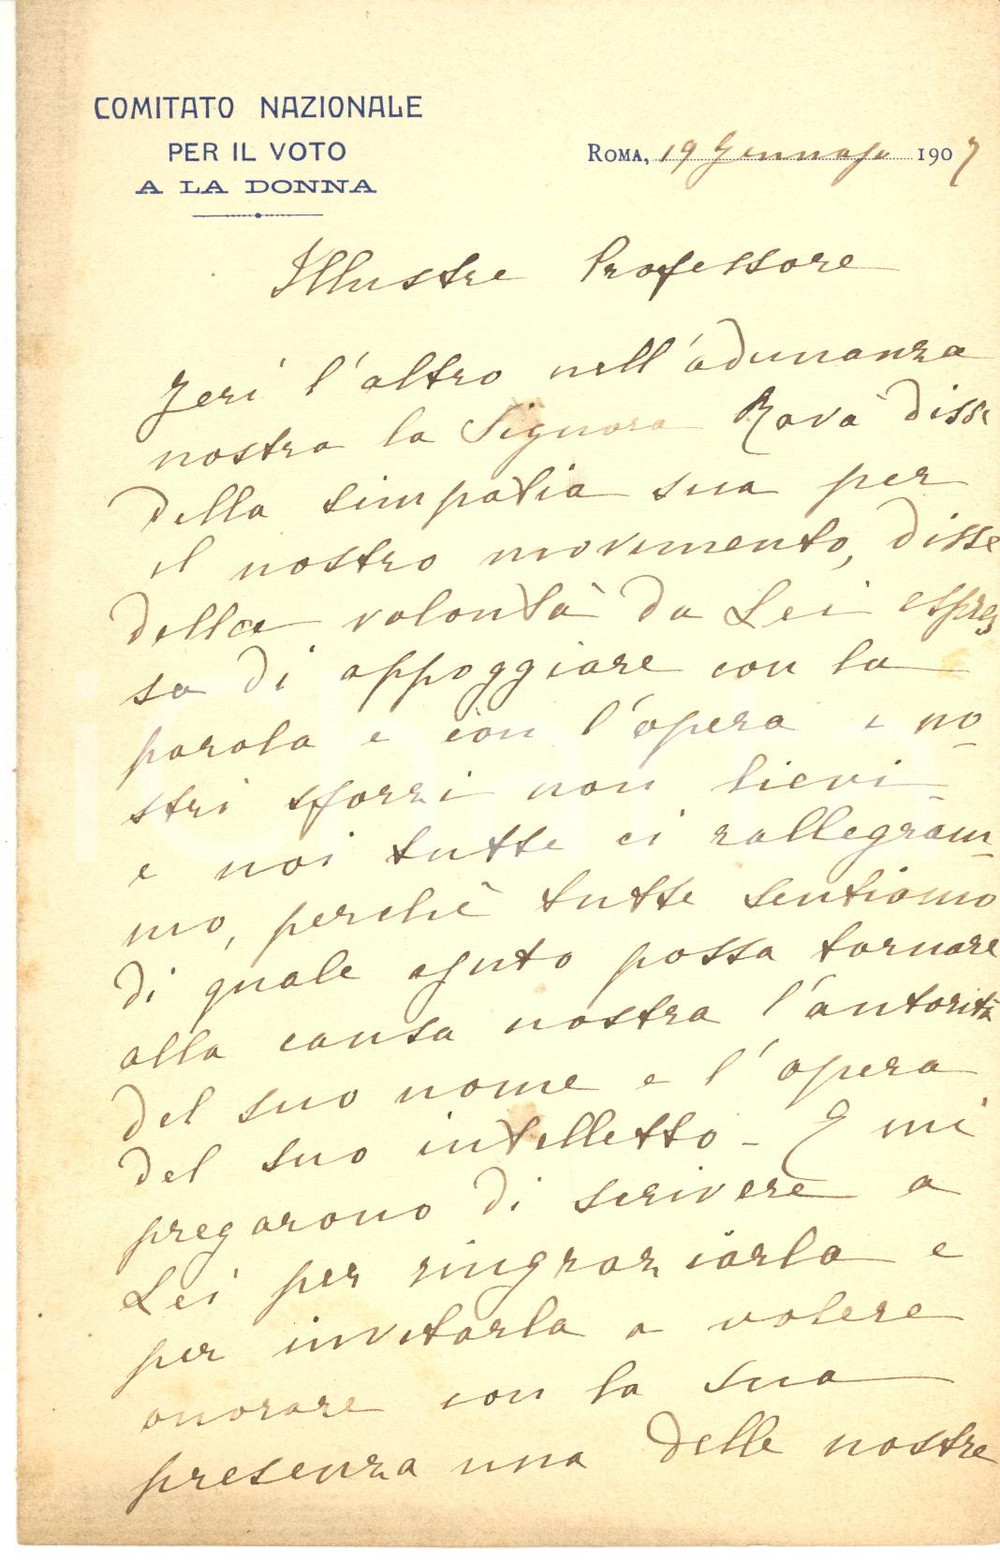 COMITATO NAZIONALE
PER IL VOTO
A LA DONNA
ROMA, 19 Gennajo 1907
Illustre Professore
Jeri l'altro nell'adunanza
nostra la Signora Ravà disse
della simpatia sua per
il nostro movimento, disse
della volontà da Lei espres
sa di appoggiare con la
parola e con l'opera i no-
stri sforzi non lievi
e noi tutte ci rallegram-
mo, perchè tutte sentiamo
di quale ajuto possa tornare
alla causa nostra l'autorità
del suo nome e l'opera
del suo intelletto - E mi
pregarono di scrivere a
Lei per ringraziarla e
per invitarla a volere
onorare con la sua
presenza una delle nostre